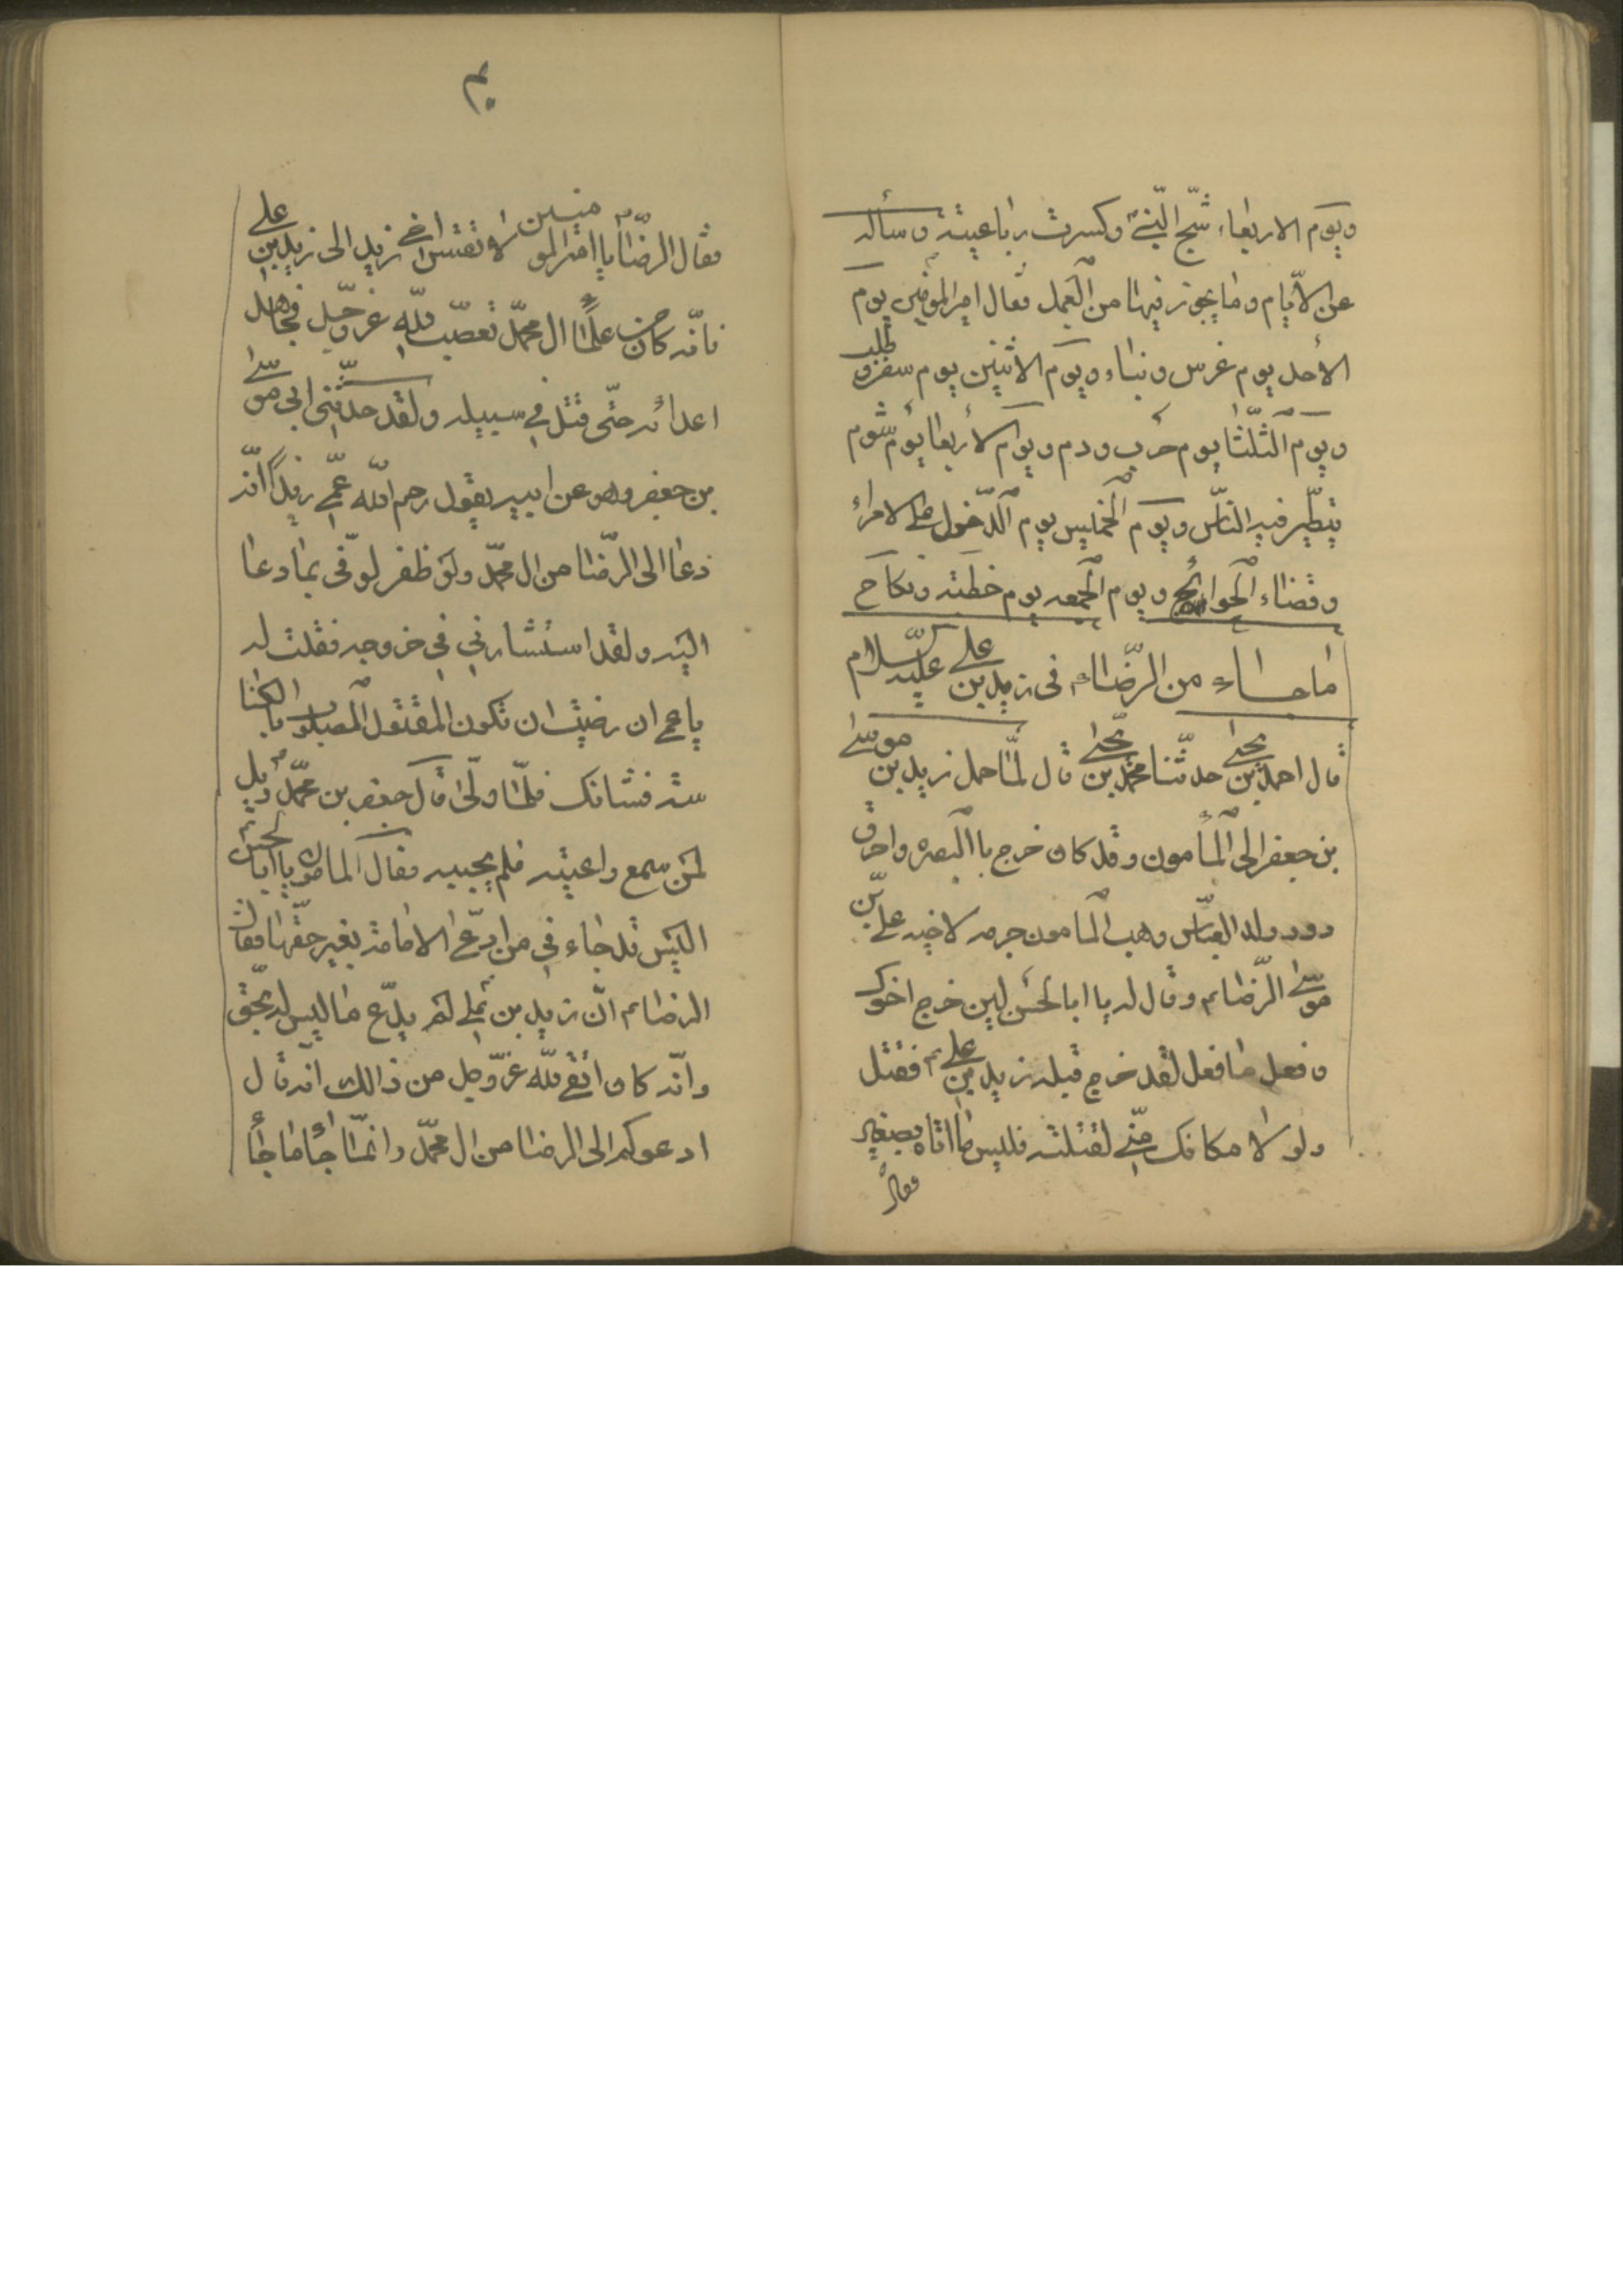 ويوم الاربعاء شجّ النّبيّ وكسرت رباعيته وساله
عن الايّام وما يجوز فيها من العمل فقال امير المؤمنين يوم
الأحد يوم غرس وبناء ويوم الاثنين يوم سفر وطلب
ويوم الثّلثا يوم حرب ودم ويوم الأربعا يوم شوم
يتطيّر فيه النّاس ويوم الخميس يوم الدّخول على الامراء
وقضاء الحوائج ويوم الجمعه يوم خطبته ونكاح
ما جاء من الرّضاء م في زيد بن على عليه السّلام
قال احمد بن يحيى حدثّنا محمّد بن يحيى قال لمّا حمل زيد بن موسى
بن جعفر الى المأمون وقد كان خرج باالبصره واحرق
دور ولد العبّاس وهب المامون جرمه لاخيه علي بن
موسى الرّضا م وقال له يا ابا الحسن لين خرج اخوك
وفعل ما فعل لقد خرج قبله زيد بن على م فقتل
ولو لا مكانك منّي لقتلته فليس ما اتاه بصغير
فقال
م
فقال الرضا م يا امير المومنين لا تقس اخي زيد الى زيد بن على
فانّه كان من علما ال محمّد تعصّب للّه عزّ وجل فجاهد
اعدائه حتّى قتل في سبيله ولقد حدّثني ابي موسى
بن جعفر وهو عن ابيه يقول رحم اللّه عمّي زيداً انّه
دعا الى الرّضا من ال محمّد ولو ظفر لوفّى بما دعا
اليه ولقد استشارني في خروجه فقلت له
يا عم ان رضيت ان تكون المقتول المصلوب باالكنا
سته فشانك فلمّا ولّى قال جعفر بن محمّد م ويل
لمن سمع واعيته فلم يجيبه فقال المامون يا ابا الحسن
اليس قد جاء في من ادّعى الامامة بغير حقّها فقال
الرضا م انّ زيد بن على لم يدّع ما ليس له بحقّ
وانّه كان اتقى للّه عزّ وجل من ذالك انّه قال
ادعوكم الى الرضا من ال محمّد وانمّا جأ ما جأ